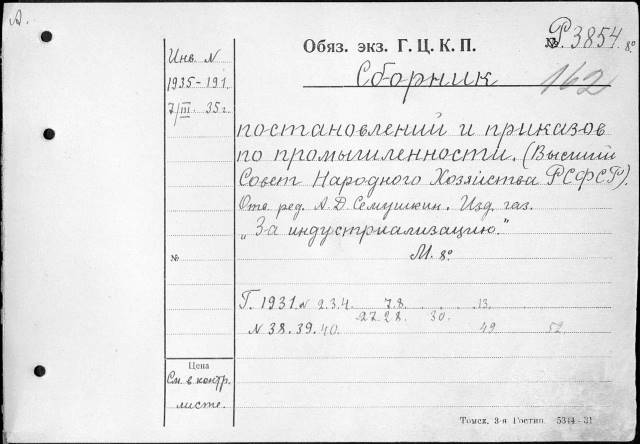 А.
Обяз. экз. Г. Ц. К. П.
№ Р.3854. 8º
Инв. N
1935-191.
7/III 35 г.
Сборник
162
постановлений и приказов
по промышленности. (Высший
Совет Народного Хозяйства РСФСР).
Отв. ред. А. Д. Семушкин. Изд. газ.
„За индустриализацию."
М. 8º
№
Г. 1931. N 2.3.4. 7.8. 13.
27.28. 30.
N 38.39.40. 49 52.
Цена
См. в контр.
листе.
Томск. 3-я Гостип. 5344-31